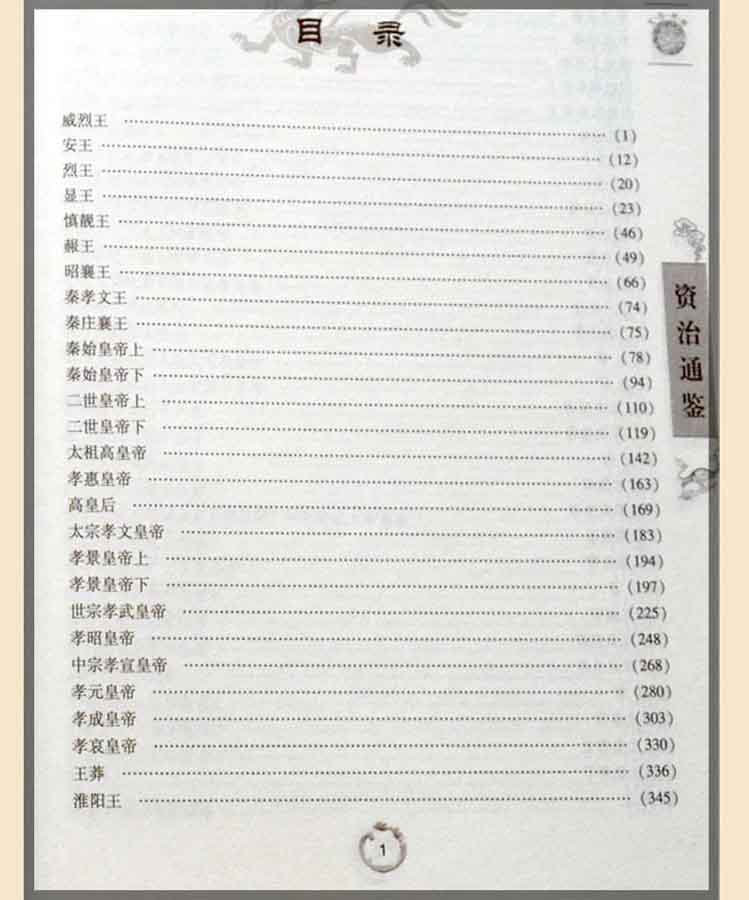 目 录
威烈王 ………………………………………… (1)
安王 ………………………………………… (12)
烈王 ………………………………………… (20)
显王 ………………………………………… (23)
慎靓王 ………………………………………… (46)
赧王 ………………………………………… (49)
昭襄王 ………………………………………… (66)
秦孝文王 ………………………………………… (74)
秦庄襄王 ………………………………………… (75)
秦始皇帝上 ………………………………………… (78)
秦始皇帝下 ………………………………………… (94)
二世皇帝上 ………………………………………… (110)
二世皇帝下 ………………………………………… (119)
太祖高皇帝 ………………………………………… (142)
孝惠皇帝 ………………………………………… (163)
高皇后 ………………………………………… (169)
太宗孝文皇帝 ………………………………………… (183)
孝景皇帝上 ………………………………………… (194)
孝景皇帝下 ………………………………………… (197)
世宗孝武皇帝 ………………………………………… (225)
孝昭皇帝 ………………………………………… (248)
中宗孝宣皇帝 ………………………………………… (268)
孝元皇帝 ………………………………………… (280)
孝成皇帝 ………………………………………… (303)
孝哀皇帝 ………………………………………… (330)
王莽 ………………………………………… (336)
淮阳王 ………………………………………… (345)
资治通鉴
1